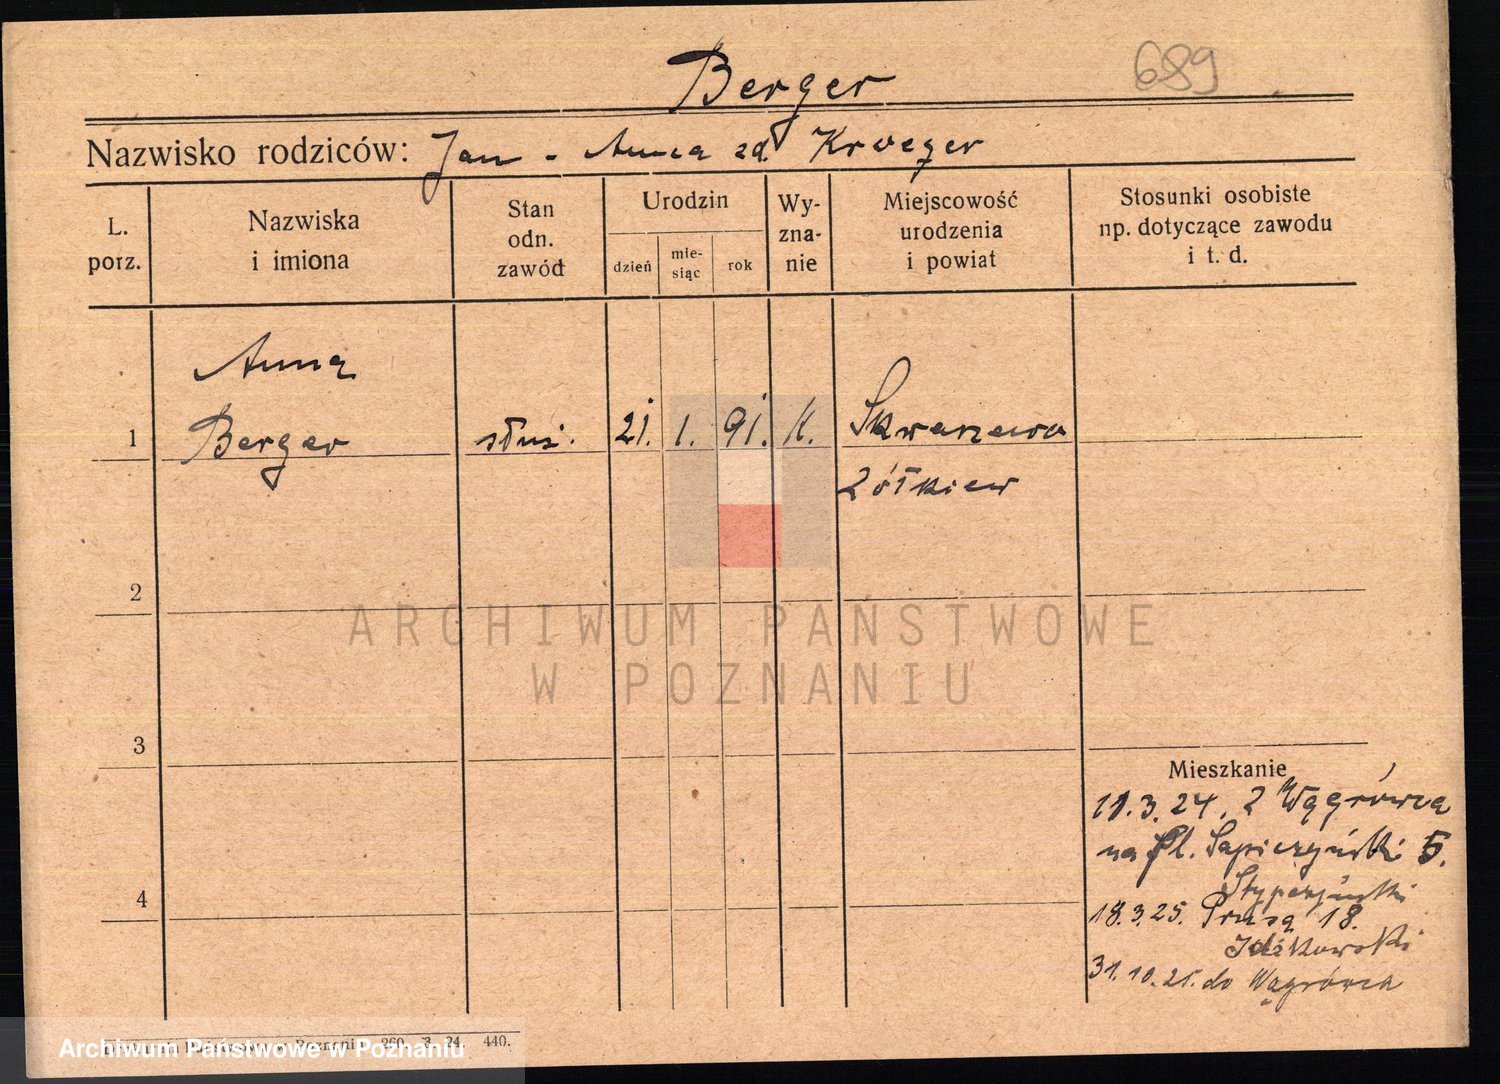 Berger
689
Nazwisko rodziców: Jan - Anna zd. Krueger
L. porz.
Nazwiska i imiona
Stan odn. zawód
Urodzin
dzień
mie-siąc
rok
Wy-zna-nie
Miejscowość urodzenia i powiat
Stosunki osobiste np. dotyczące zawodu i t. d.
Anna
1 Berger służ. 21. 1. 91. K. Skwarzawa
Żółkiew
2
ARCHIWUM PAŃSTWOWE
W POZNANIU
3
Mieszkanie
11.3.24. z Wągrówca
na Pl. Sapieżyński 5.
4
18.3.25. Prusa 18.
31.10.25. do Wągrówca
Archiwum Państwowe w Poznaniu
260. 3. 24. 440.